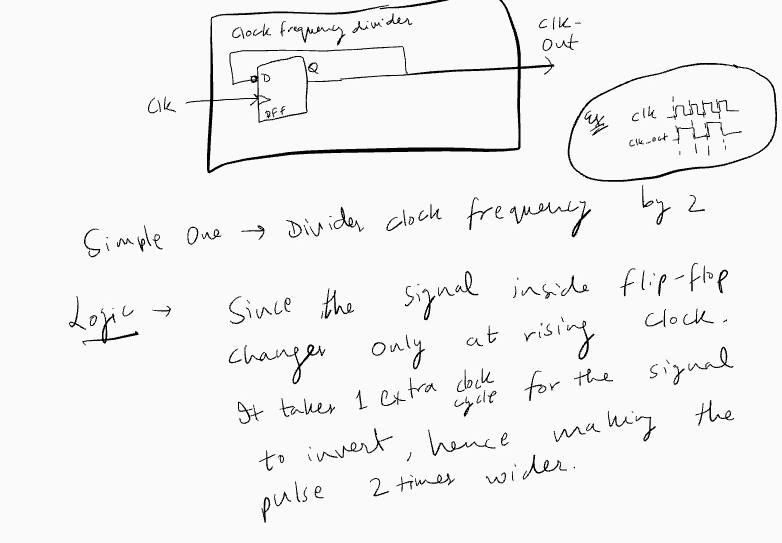 Clock frequency divider
Clk-
Out
D
Q
Clk
DFF
Ex
clk
clk_out
Simple One → Divider clock frequency by 2
Logic → Since the signal inside flip-flop
changes only at rising clock.
It takes 1 extra clock
cycle for the signal
to invert, hence making the
pulse 2 times wider.